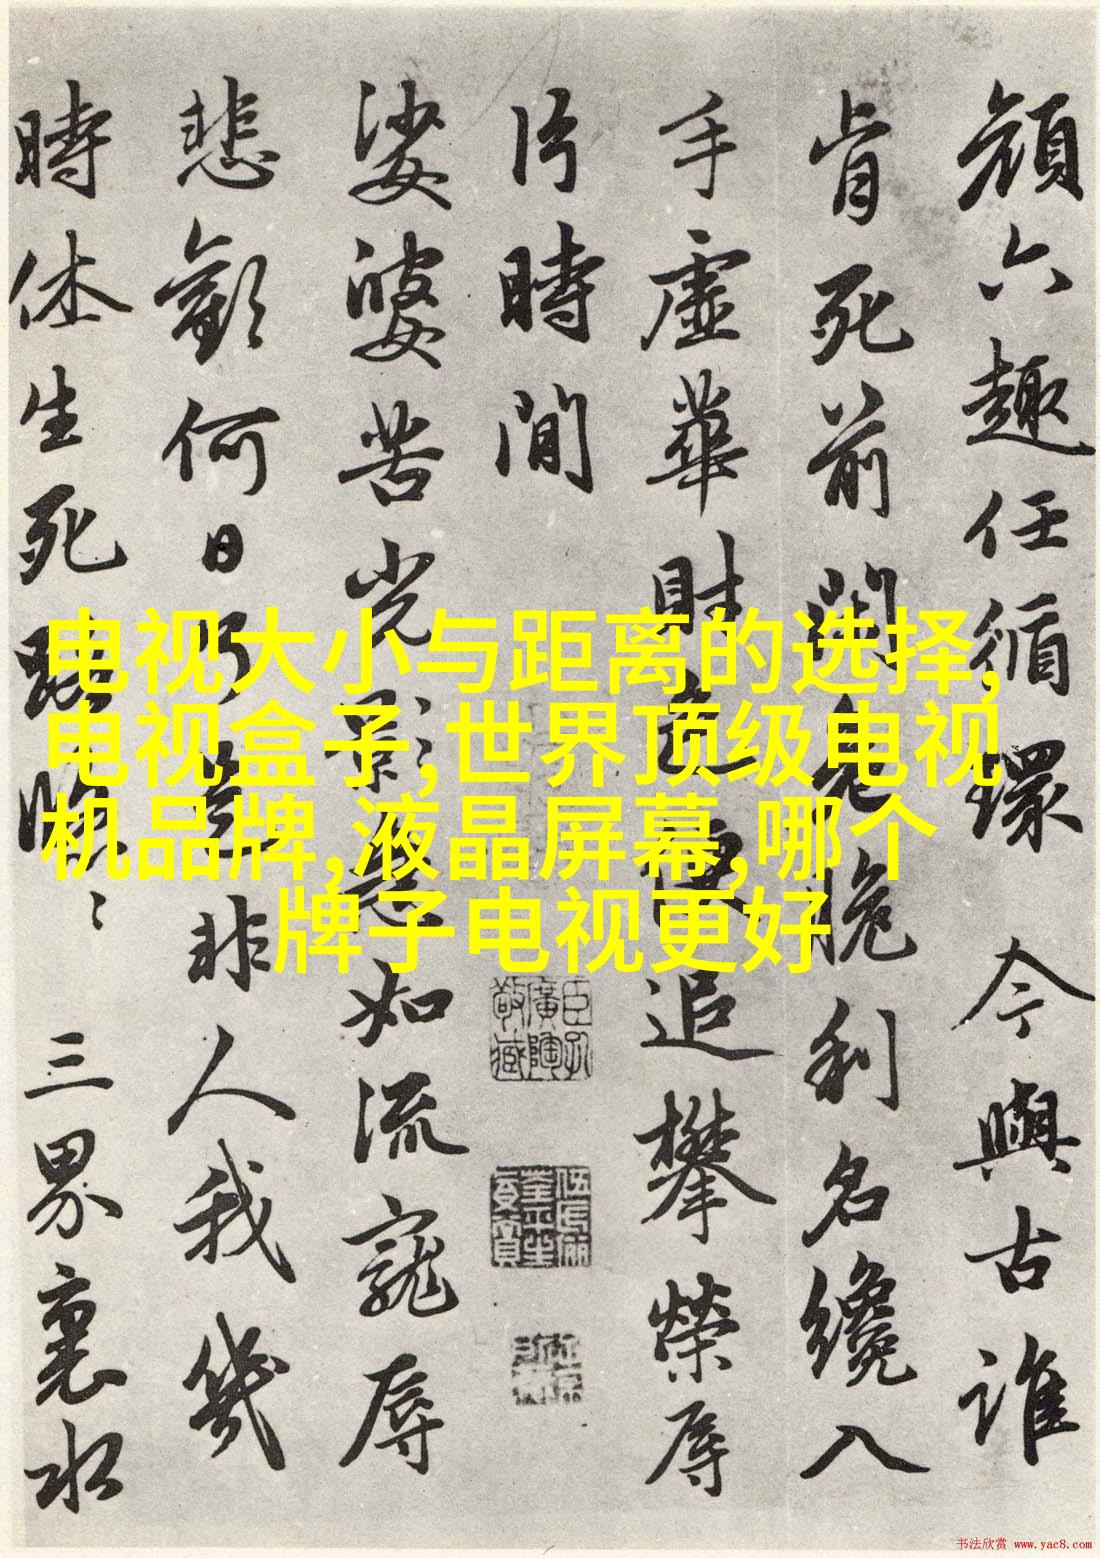 六趣任循環 今與古誰
肯死前閑危脆利名纔入
手虛華財色便追攀榮辱
片時間
娑婆苦光影急如流寵辱
悲歡何日了是非人我幾
時休生死路悠悠 三界裏水
电视大小与距离的选择,
电视盒子,世界顶级电视
机品牌,液晶屏幕,哪个
牌子电视更好
书法欣赏 www.yac8.com